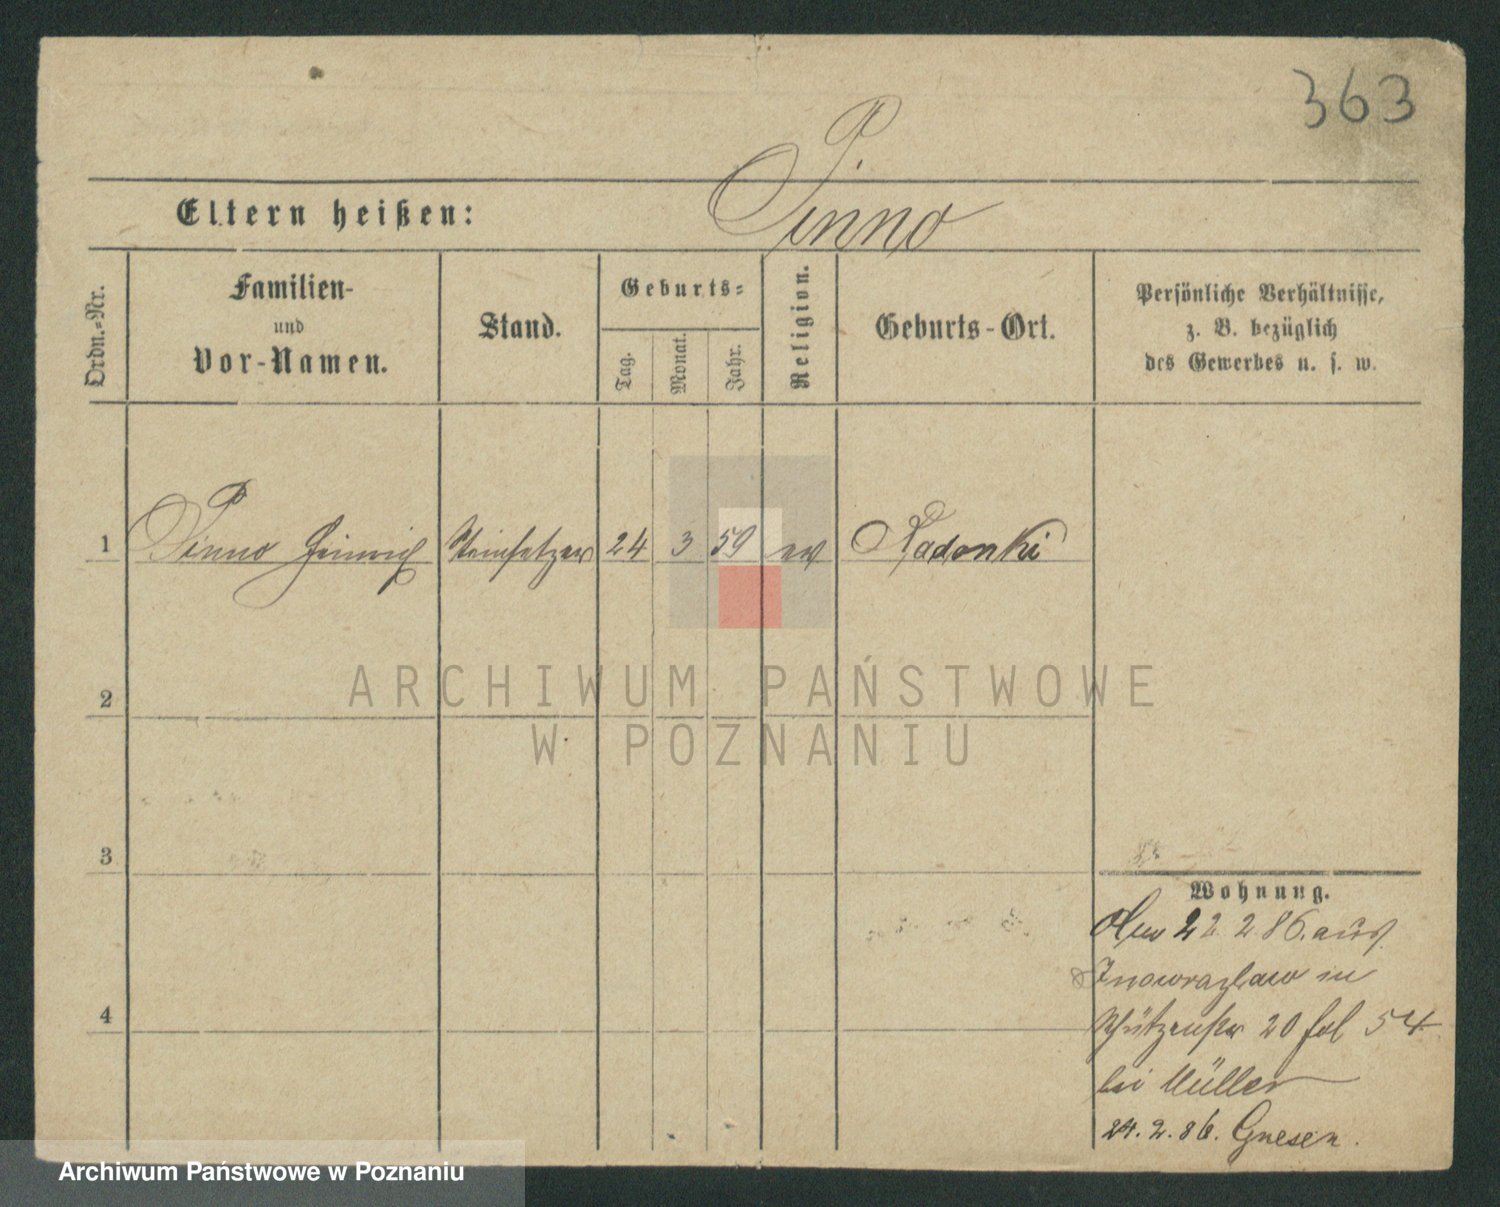 363
Pinno
Eltern heißen:
Ordn.-Nr.
Familien-
und
Vor-Namen.
Stand.
Geburts-
Tag.
Monat.
Jahr.
Religion.
Geburts-Ort.
Persönliche Verhältnisse,
z. B. bezüglich
des Gewerbes u. s. w.
1 Pinno Heinrich Steinsetzer 24 3 59 ev Radonki
ARCHIWUM PAŃSTWOWE
W POZNANIU
2
3
4
Wohnung.
22 2 86. aus
Inowrazlaw in
Schützenstr 20 fol 54
bei Müller
24. 2. 86. Gnesen.
Archiwum Państwowe w Poznaniu